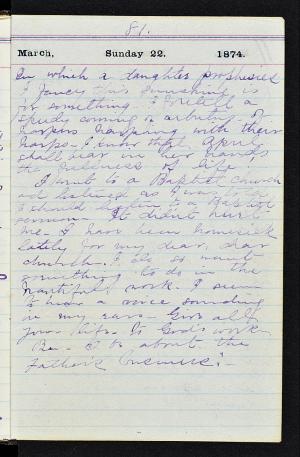 81.
March, Sunday 22. 1874.
In which a daughter prophesies
I fancy this sunshine is
for something. I foretell a
speedy coming & arbutus &
harpers harping with their
harps. I know that April
shall bear in her hands
the fullness of life.
I went to a Baptist church
and
I should listen to a Baptist
sermon. It didn't hurt
me. I have been homesick
lately for my dear, dear
church. I do so want
something to do in the
beautiful work. I seem
to hear a voice sounding
in my ears. Give all
your life. Is God's work
Be. I be about the
Father's business."